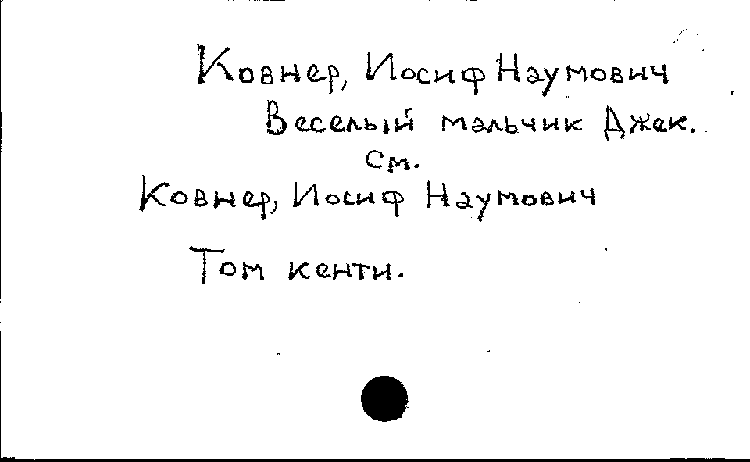 Ковнер, Иосиф Наумович
Веселый мальчик Джек.
см.
Ковнер, Иосиф Наумович
Том кенти.